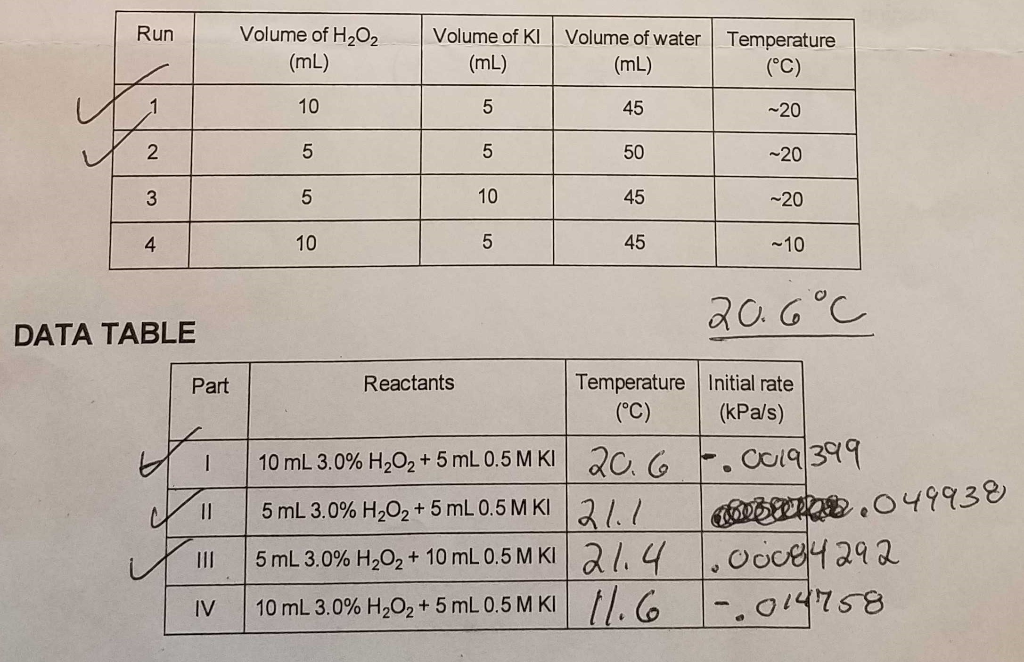 Run Volume of H₂O₂ (mL) Volume of KI (mL) Volume of water (mL) Temperature (°C)
1 10 5 45 ~20
2 5 5 50 ~20
3 5 10 45 ~20
4 10 5 45 ~10
20.6°C
DATA TABLE
Part Reactants Temperature (°C) Initial rate (kPa/s)
I 10 mL 3.0% H₂O₂ + 5 mL 0.5 M KI 20.6 -.0019399
II 5 mL 3.0% H₂O₂ + 5 mL 0.5 M KI 21.1 .049938
III 5 mL 3.0% H₂O₂ + 10 mL 0.5 M KI 21.4 .00084292
IV 10 mL 3.0% H₂O₂ + 5 mL 0.5 M KI 11.6 -.014758